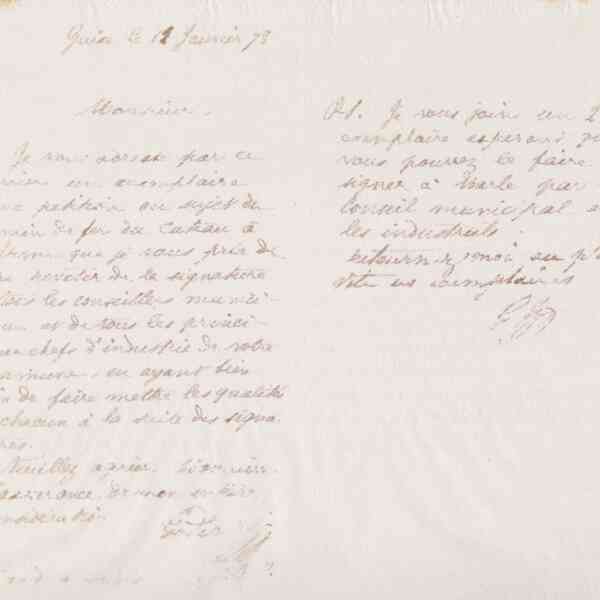 Guise le 12 Janvier 78
Monsieur.
Je vous adresse par ce
un exemplaire
petition au sujet du
de fer du Cateau à
que je vous prie de
revetir de la signature
tous les conseillers munici-
et de tous les princi-
chefs d'industrie de votre
en ayant bien
de faire mettre les qualités
chacun à la suite des signa-
res.
Veuillez agréer, Monsieur
assurance de mon entière
PS. Je vous joins un 2
exemplaire esperant
vous pourrez le faire
signer à Marle par
Conseil municipal
les industriels.
retournez moi au
vite ces exemplaires